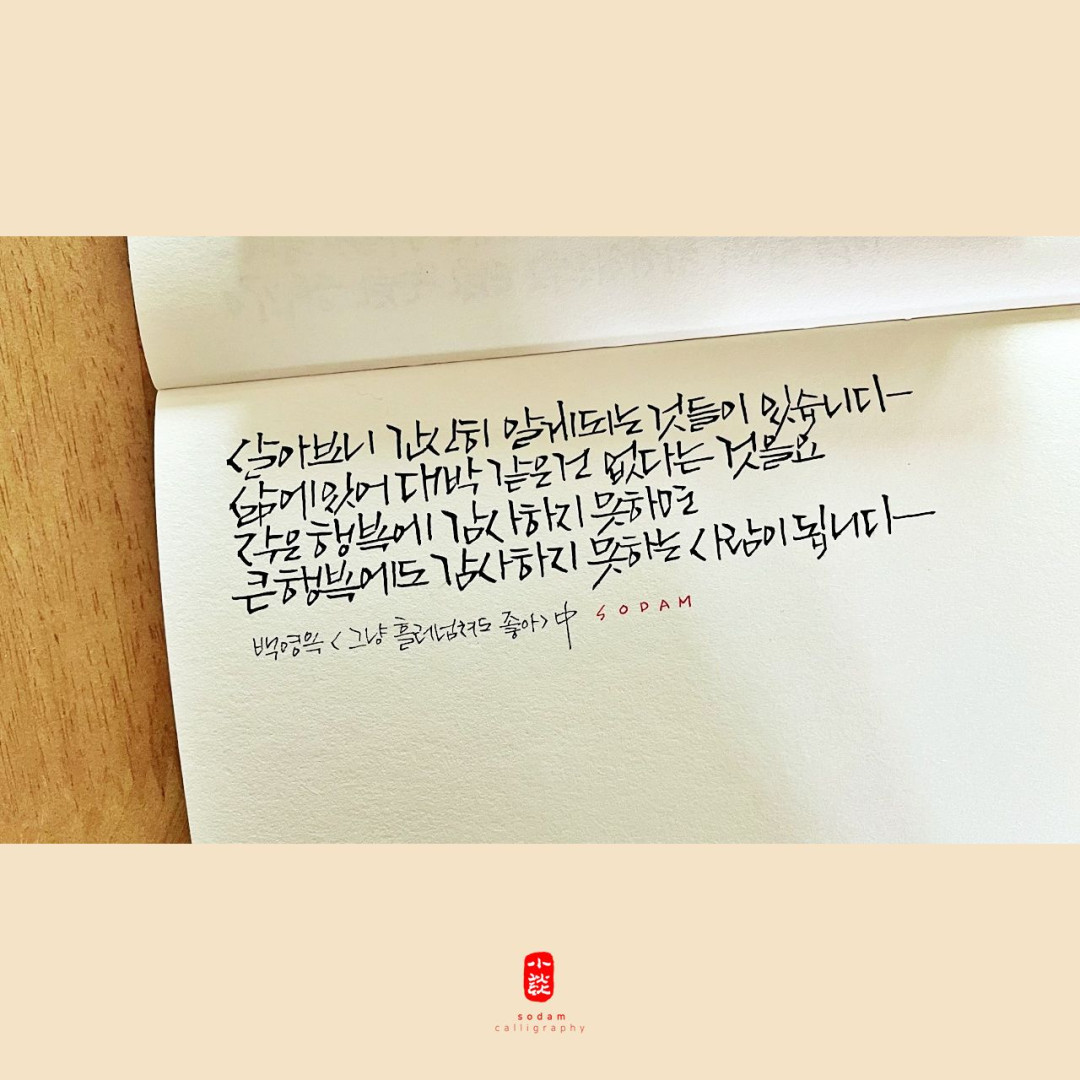 살아보니 간신히 알게되는것들이 있습니다
삶에있어 대박 같은건 없다는 것을요
작은행복에 감사하지 못하면
큰행복에도 감사하지 못하는 사람이 됩니다
백영옥 <그냥 흘러넘쳐도 좋아> 中 SODAM
小談
sodam
calligraphy